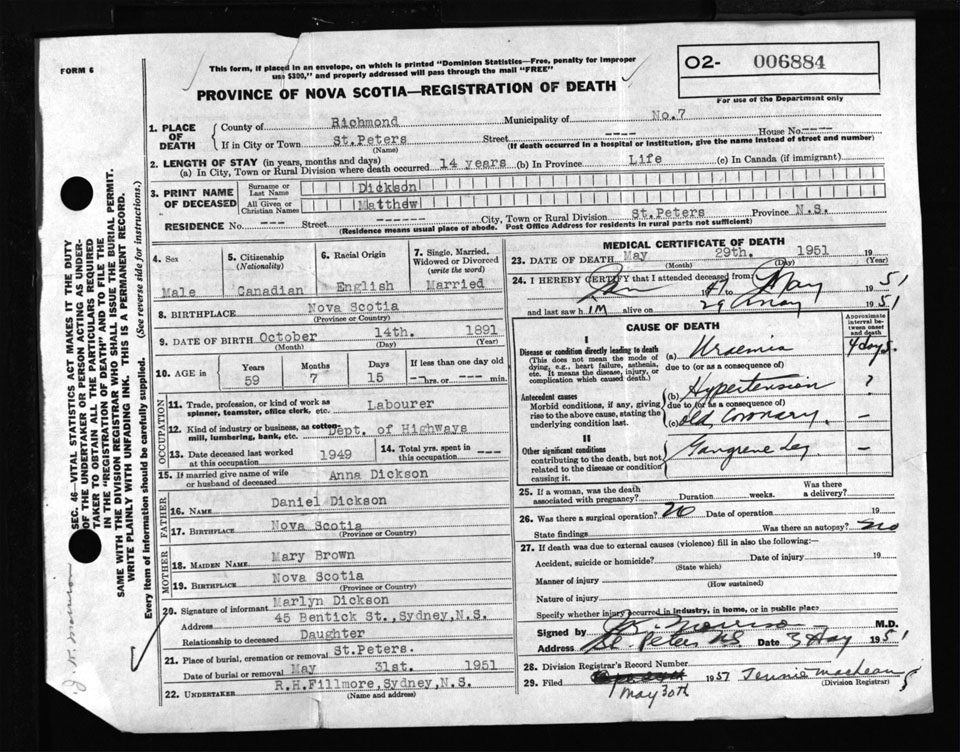 FORM 6
This form, if placed in an envelope, on which is printed "Dominion Statistics—Free, penalty for improper
use $300," and properly addressed will pass through the mail "FREE"
O2- 006884
For use of the Department only
PROVINCE OF NOVA SCOTIA—REGISTRATION OF DEATH
1. PLACE OF DEATH
County of Richmond Municipality of No.7
If in City or Town St.Peters Street ---- House No. ----
(Name) (If death occurred in a hospital or institution, give the name instead of street and number)
2. LENGTH OF STAY (in years, months and days)
(a) In City, Town or Rural Division where death occurred 14 years (b) In Province Life (c) In Canada (if immigrant)
3. PRINT NAME OF DECEASED
Surname or Last Name Dickson
All Given or Christian Names Matthew
RESIDENCE No. --- Street ------ City, Town or Rural Division St.Peters Province N.S.
(Residence means usual place of abode. Post Office Address for residents in rural parts not sufficient)
4. Sex
Male
5. Citizenship
(Nationality)
Canadian
6. Racial Origin
English
7. Single, Married, Widowed or Divorced
(write the word)
Married
8. BIRTHPLACE Nova Scotia
(Province or Country)
9. DATE OF BIRTH October 14th. 1891
(Month) (Day) (Year)
10. AGE in Years Months Days If less than one day old
59 7 15 --hrs. or ---- min.
OCCUPATION
11. Trade, profession, or kind of work as
spinner, teamster, office clerk, etc. Labourer
12. Kind of industry or business, as cotton-
mill, lumbering, bank, etc. Dept. of Highways
13. Date deceased last worked
at this occupation 1949
14. Total yrs. spent in
this occupation ---
15. If married give name of wife
or husband of deceased Anna Dickson
FATHER
16. NAME Daniel Dickson
17. BIRTHPLACE Nova Scotia
(Province or Country)
MOTHER
18. MAIDEN NAME Mary Brown
19. BIRTHPLACE Nova Scotia
(Province or Country)
20. Signature of informant Marlyn Dickson
Address 45 Bentick St.,Sydney,N.S.
Relationship to deceased Daughter
21. Place of burial, cremation or removal St.Peters.
Date of burial or removal May 31st. 1951
22. UNDERTAKER R.H.Fillmore,Sydney,N.S.
(Name and address)
MEDICAL CERTIFICATE OF DEATH
23. DATE OF DEATH May 29th. 1951 19
(Month) (Day) (Year)
24. I HEREBY CERTIFY that I attended deceased from
to May 1951
and last saw h IM alive on 29 May 1951
CAUSE OF DEATH
Approximate interval between onset and death
I
Disease or condition directly leading to death
(This does not mean the mode of
dying, e.g., heart failure, asthenia,
etc. It means the disease, injury, or
complication which caused death.)
(a) Uraemia 4 days.
due to (or as a consequence of)
Antecedent causes
Morbid conditions, if any, giving
rise to the above cause, stating the
underlying condition last.
(b) Hypertension ?
due to (or as a consequence of)
(c) old Coronary. —
II
Other significant conditions
contributing to the death, but not
related to the disease or condition
causing it.
Gangrene Leg —
25. If a woman, was the death
associated with pregnancy? Duration weeks. Was there a delivery?
26. Was there a surgical operation? no Date of operation 19
State findings Was there an autopsy? no
27. If death was due to external causes (violence) fill in also the following:—
Accident, suicide or homicide? Date of injury 19
(State which)
Manner of injury
(How sustained)
Nature of injury
Specify whether injury occurred in industry, in home, or in public place
Signed by Morrison M.D.
Address St. Peters N.S. Date 3 1951
28. Division Registrar's Record Number
29. Filed May 30th 1951 Jennie MacLean
(Division Registrar)
SEC. 46—VITAL STATISTICS ACT MAKES IT THE DUTY
OF THE UNDERTAKER OR PERSON ACTING AS UNDER-
TAKER TO OBTAIN ALL THE PARTICULARS REQUIRED
IN THE "REGISTRATION OF DEATH" AND TO FILE THE
SAME WITH THE DIVISION REGISTRAR WHO SHALL ISSUE THE BURIAL PERMIT.
WRITE PLAINLY WITH UNFADING INK. THIS IS A PERMANENT RECORD.
Every item of information should be carefully supplied. (See reverse side for instructions.)